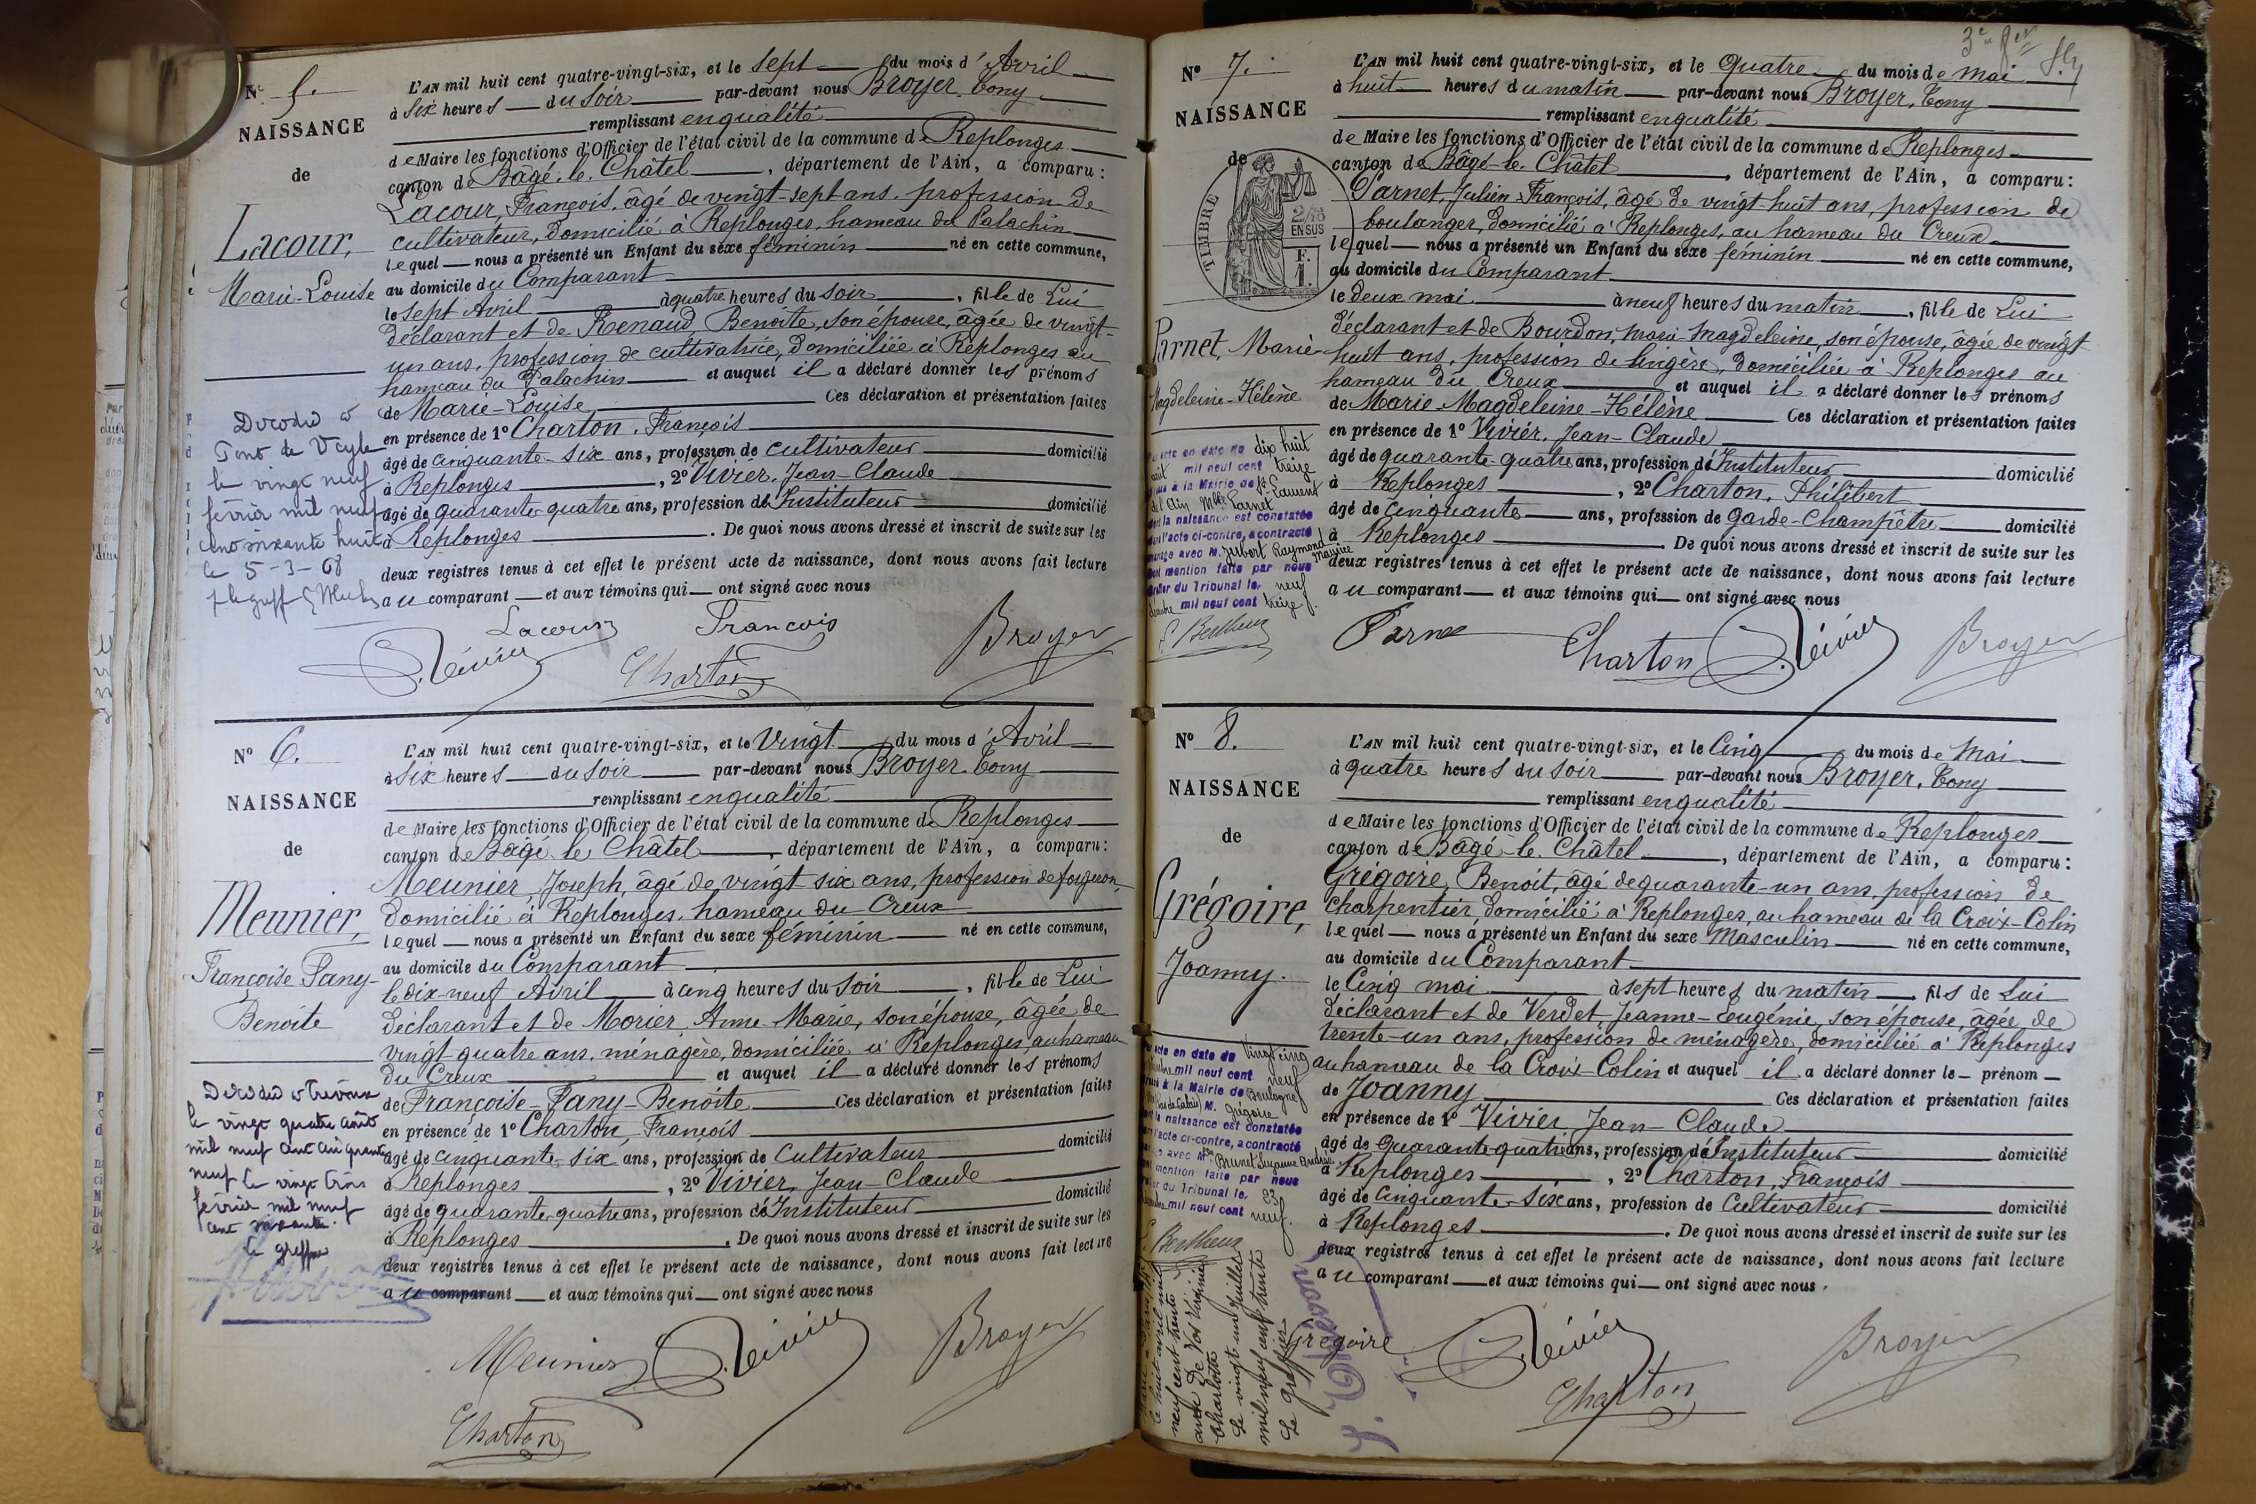 N° 5.
NAISSANCE
de
Lacour,
Marie-Louise
L'AN mil huit cent quatre-vingt-six, et le sept du mois d'Avril
à six heures du soir par-devant nous Broyer, Tony
remplissant en qualité
de Maire les fonctions d'Officier de l'état civil de la commune de Replonges
canton de Bâgé-le-Châtel, département de l'Ain, a comparu:
Lacour, François, âgé de vingt-sept ans, profession de
cultivateur, domicilié à Replonges, hameau du Palachin
lequel nous a présenté un Enfant du sexe féminin né en cette commune,
au domicile du Comparant
le sept Avril à quatre heures du soir, fille de Lui
déclarant et de Renaud, Benoite, son épouse, âgée de vingt-
un ans, profession de cultivatrice, domiciliée à Replonges au
hameau du Palachin et auquel il a déclaré donner les prénoms
de Marie-Louise Ces déclaration et présentation faites
en présence de 1° Charton, François
âgé de cinquante-six ans, profession de cultivateur domicilié
à Replonges, 2° Vivier, Jean-Claude
âgé de quarante-quatre ans, profession d'Instituteur domicilié
à Replonges. De quoi nous avons dressé et inscrit de suite sur les
deux registres tenus à cet effet le présent acte de naissance, dont nous avons fait lecture
au comparant et aux témoins qui ont signé avec nous
Décédée à
Pont de Veyle
le vingt neuf
février mil neuf
cent soixante huit
le 5-3-68
Lacour François
Vivier Charton Broyer
N° 6.
NAISSANCE
de
Meunier,
Françoise Fany-
Benoite
L'AN mil huit cent quatre-vingt-six, et le Vingt du mois d'Avril
à six heures du soir par-devant nous Broyer, Tony
remplissant en qualité
de Maire les fonctions d'Officier de l'état civil de la commune de Replonges
canton de Bâgé-le-Châtel, département de l'Ain, a comparu:
Meunier, Joseph, âgé de vingt six ans, profession de forgeron,
domicilié à Replonges, hameau du Creux
lequel nous a présenté un Enfant du sexe féminin né en cette commune,
au domicile du Comparant
le dix-neuf Avril à cinq heures du soir, fille de Lui
déclarant et de Morier, Anne-Marie, son épouse, âgée de
vingt quatre ans, ménagère, domiciliée à Replonges, au hameau
du Creux et auquel il a déclaré donner les prénoms
de Françoise-Fany-Benoite Ces déclaration et présentation faites
en présence de 1° Charton, François
âgé de cinquante-six ans, profession de Cultivateur domicilié
à Replonges, 2° Vivier, Jean-Claude
âgé de quarante-quatre ans, profession d'Instituteur domicilié
à Replonges. De quoi nous avons dressé et inscrit de suite sur les
deux registres tenus à cet effet le présent acte de naissance, dont nous avons fait lecture
au comparant et aux témoins qui ont signé avec nous
Décédée à Trévoux
le vingt quatre août
mil neuf cent cinquante
neuf le vingt trois
février mil neuf
cent soixante.
le greffier
Meunier Vivier Broyer
Charton
N° 7.
NAISSANCE
de
TIMBRE
2/10
EN SUS
F.
1.
Parnet, Marie-
Magdeleine-Hélène
L'AN mil huit cent quatre-vingt-six, et le Quatre du mois de mai
à huit heures du matin par-devant nous Broyer, Tony
remplissant en qualité
de Maire les fonctions d'Officier de l'état civil de la commune de Replonges
canton de Bâgé-le-Châtel, département de l'Ain, a comparu:
Parnet, Julien-François, âgé de vingt-huit ans, profession de
boulanger, domicilié à Replonges, au hameau du Creux
lequel nous a présenté un Enfant du sexe féminin né en cette commune,
au domicile du Comparant
le deux mai à neuf heures du matin, fille de Lui
déclarant et de Bourdon, Marie-Magdeleine, son épouse, âgée de vingt
huit ans, profession de lingère, domiciliée à Replonges au
hameau du Creux et auquel il a déclaré donner les prénoms
de Marie-Magdeleine-Hélène Ces déclaration et présentation faites
en présence de 1° Vivier, Jean-Claude
âgé de quarante-quatre ans, profession d'Instituteur domicilié
à Replonges, 2° Charton, Philibert
âgé de cinquante ans, profession de garde-Champêtre domicilié
à Replonges De quoi nous avons dressé et inscrit de suite sur les
deux registres tenus à cet effet le présent acte de naissance, dont nous avons fait lecture
au comparant et aux témoins qui ont signé avec nous
acte en date du dix huit
mil neuf cent treize
à la Mairie de St Laurent
de l'Ain Mlle Parnet
dont la naissance est constatée
dans l'acte ci-contre, a contracté
mariage avec M. Jubert Raymond
Maurice
dont mention faite par nous
greffier du Tribunal le neuf
mil neuf cent treize.
Charton Vivier Broyer
N° 8.
NAISSANCE
de
Grégoire,
Joanny.
L'AN mil huit cent quatre-vingt-six, et le Cinq du mois de Mai
à quatre heures du soir par-devant nous Broyer, Tony
remplissant en qualité
de Maire les fonctions d'Officier de l'état civil de la commune de Replonges
canton de Bâgé-le-Châtel, département de l'Ain, a comparu:
Grégoire, Benoit, âgé de quarante-un ans, profession de
charpentier, domicilié à Replonges, au hameau de la Croix-Colin
lequel nous a présenté un Enfant du sexe Masculin né en cette commune,
au domicile du Comparant
le Cinq mai à sept heures du matin, fils de Lui
déclarant et de Verdet, Jeanne-Eugénie, son épouse, âgée de
trente-un ans, profession de ménagère, domiciliée à Replonges
au hameau de la Croix-Colin et auquel il a déclaré donner le prénom
de Joanny Ces déclaration et présentation faites
en présence de 1° Vivier, Jean-Claude
âgé de quarante-quatre ans, profession d'Instituteur domicilié
à Replonges, 2° Charton, François
âgé de cinquante-six ans, profession de Cultivateur domicilié
à Replonges. De quoi nous avons dressé et inscrit de suite sur les
deux registres tenus à cet effet le présent acte de naissance, dont nous avons fait lecture
au comparant et aux témoins qui ont signé avec nous.
acte en date du vingt cinq
mil neuf cent neuf
à la Mairie de Boulogne
(Pas de Calais) M. Grégoire
la naissance est constatée
l'acte ci-contre, a contracté
avec Mlle Brunet Suzanne
mention faite par nous
du Tribunal le 23
mil neuf cent neuf.
le huit avril mil
neuf cent trente
avec De Vos Virginie
Charlotte
Le vingt-un juillet
mil neuf cent trente
Le Greffier
Grégoire Vivier Broyer
Charton